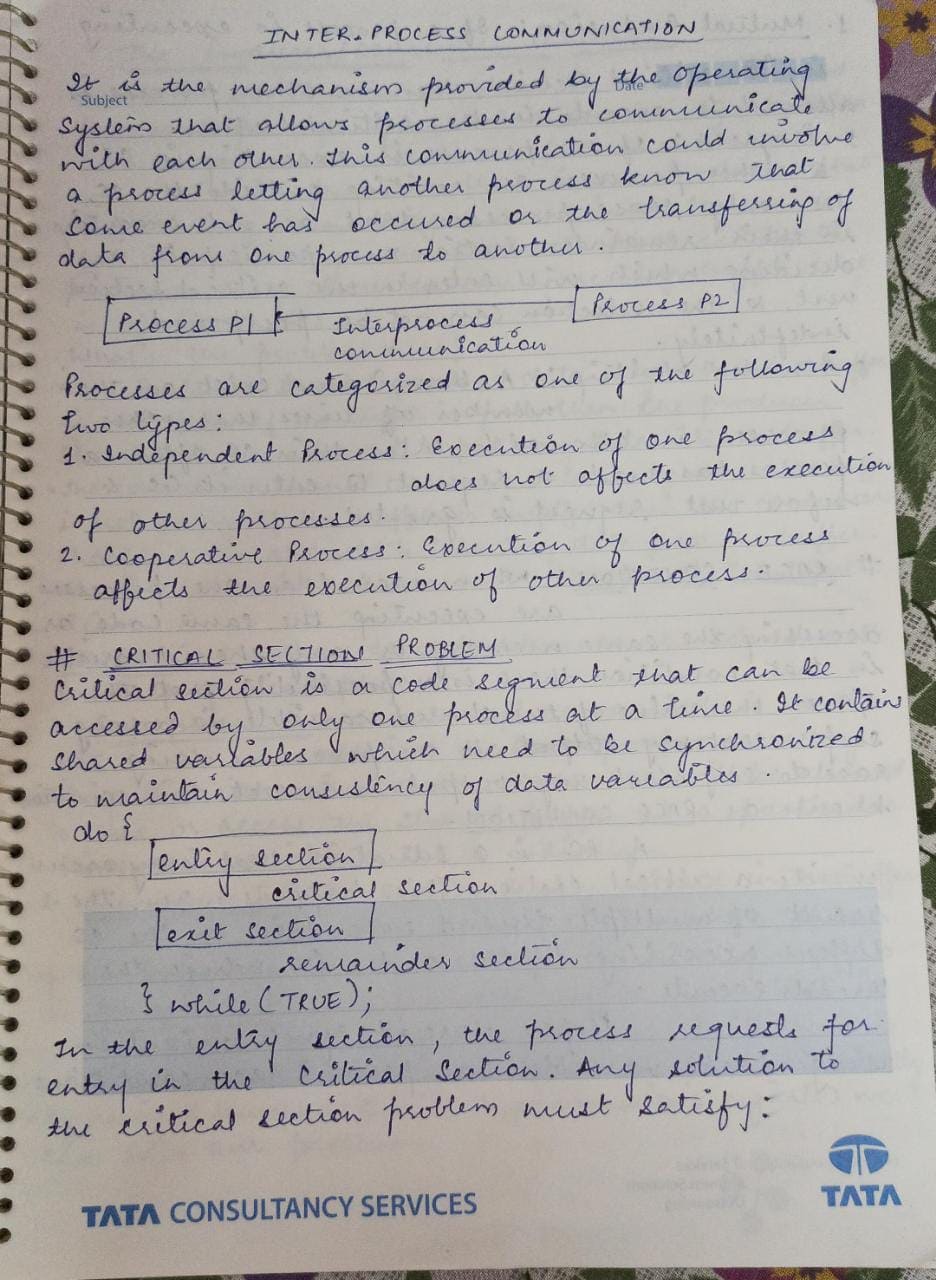 INTER-PROCESS COMMUNICATION
It is the mechanism provided by the operating
Subject
Date
system that allows processes to communicate
with each other. This communication could involve
a process letting another process know that
some event has occured or the transferring of
data from one process to another.
Process P1
Process P2
Interprocess
communication
Processes are categorized as one of the following
two types:
1. Independent Process: Execution of one process
does not affects the execution
of other processes.
2. Cooperative Process: Execution of one process
affects the execution of other process.
# CRITICAL SECTION PROBLEM
Critical section is a code segment that can be
accessed by only one process at a time. It contains
shared variables which need to be synchronized
to maintain consistency of data variables.
do {
entry section
critical section
exit section
remainder section
} while (TRUE);
In the entry section, the process requests for
entry in the Critical Section. Any solution to
the critical section problem must satisfy:
TATA CONSULTANCY SERVICES
TATA